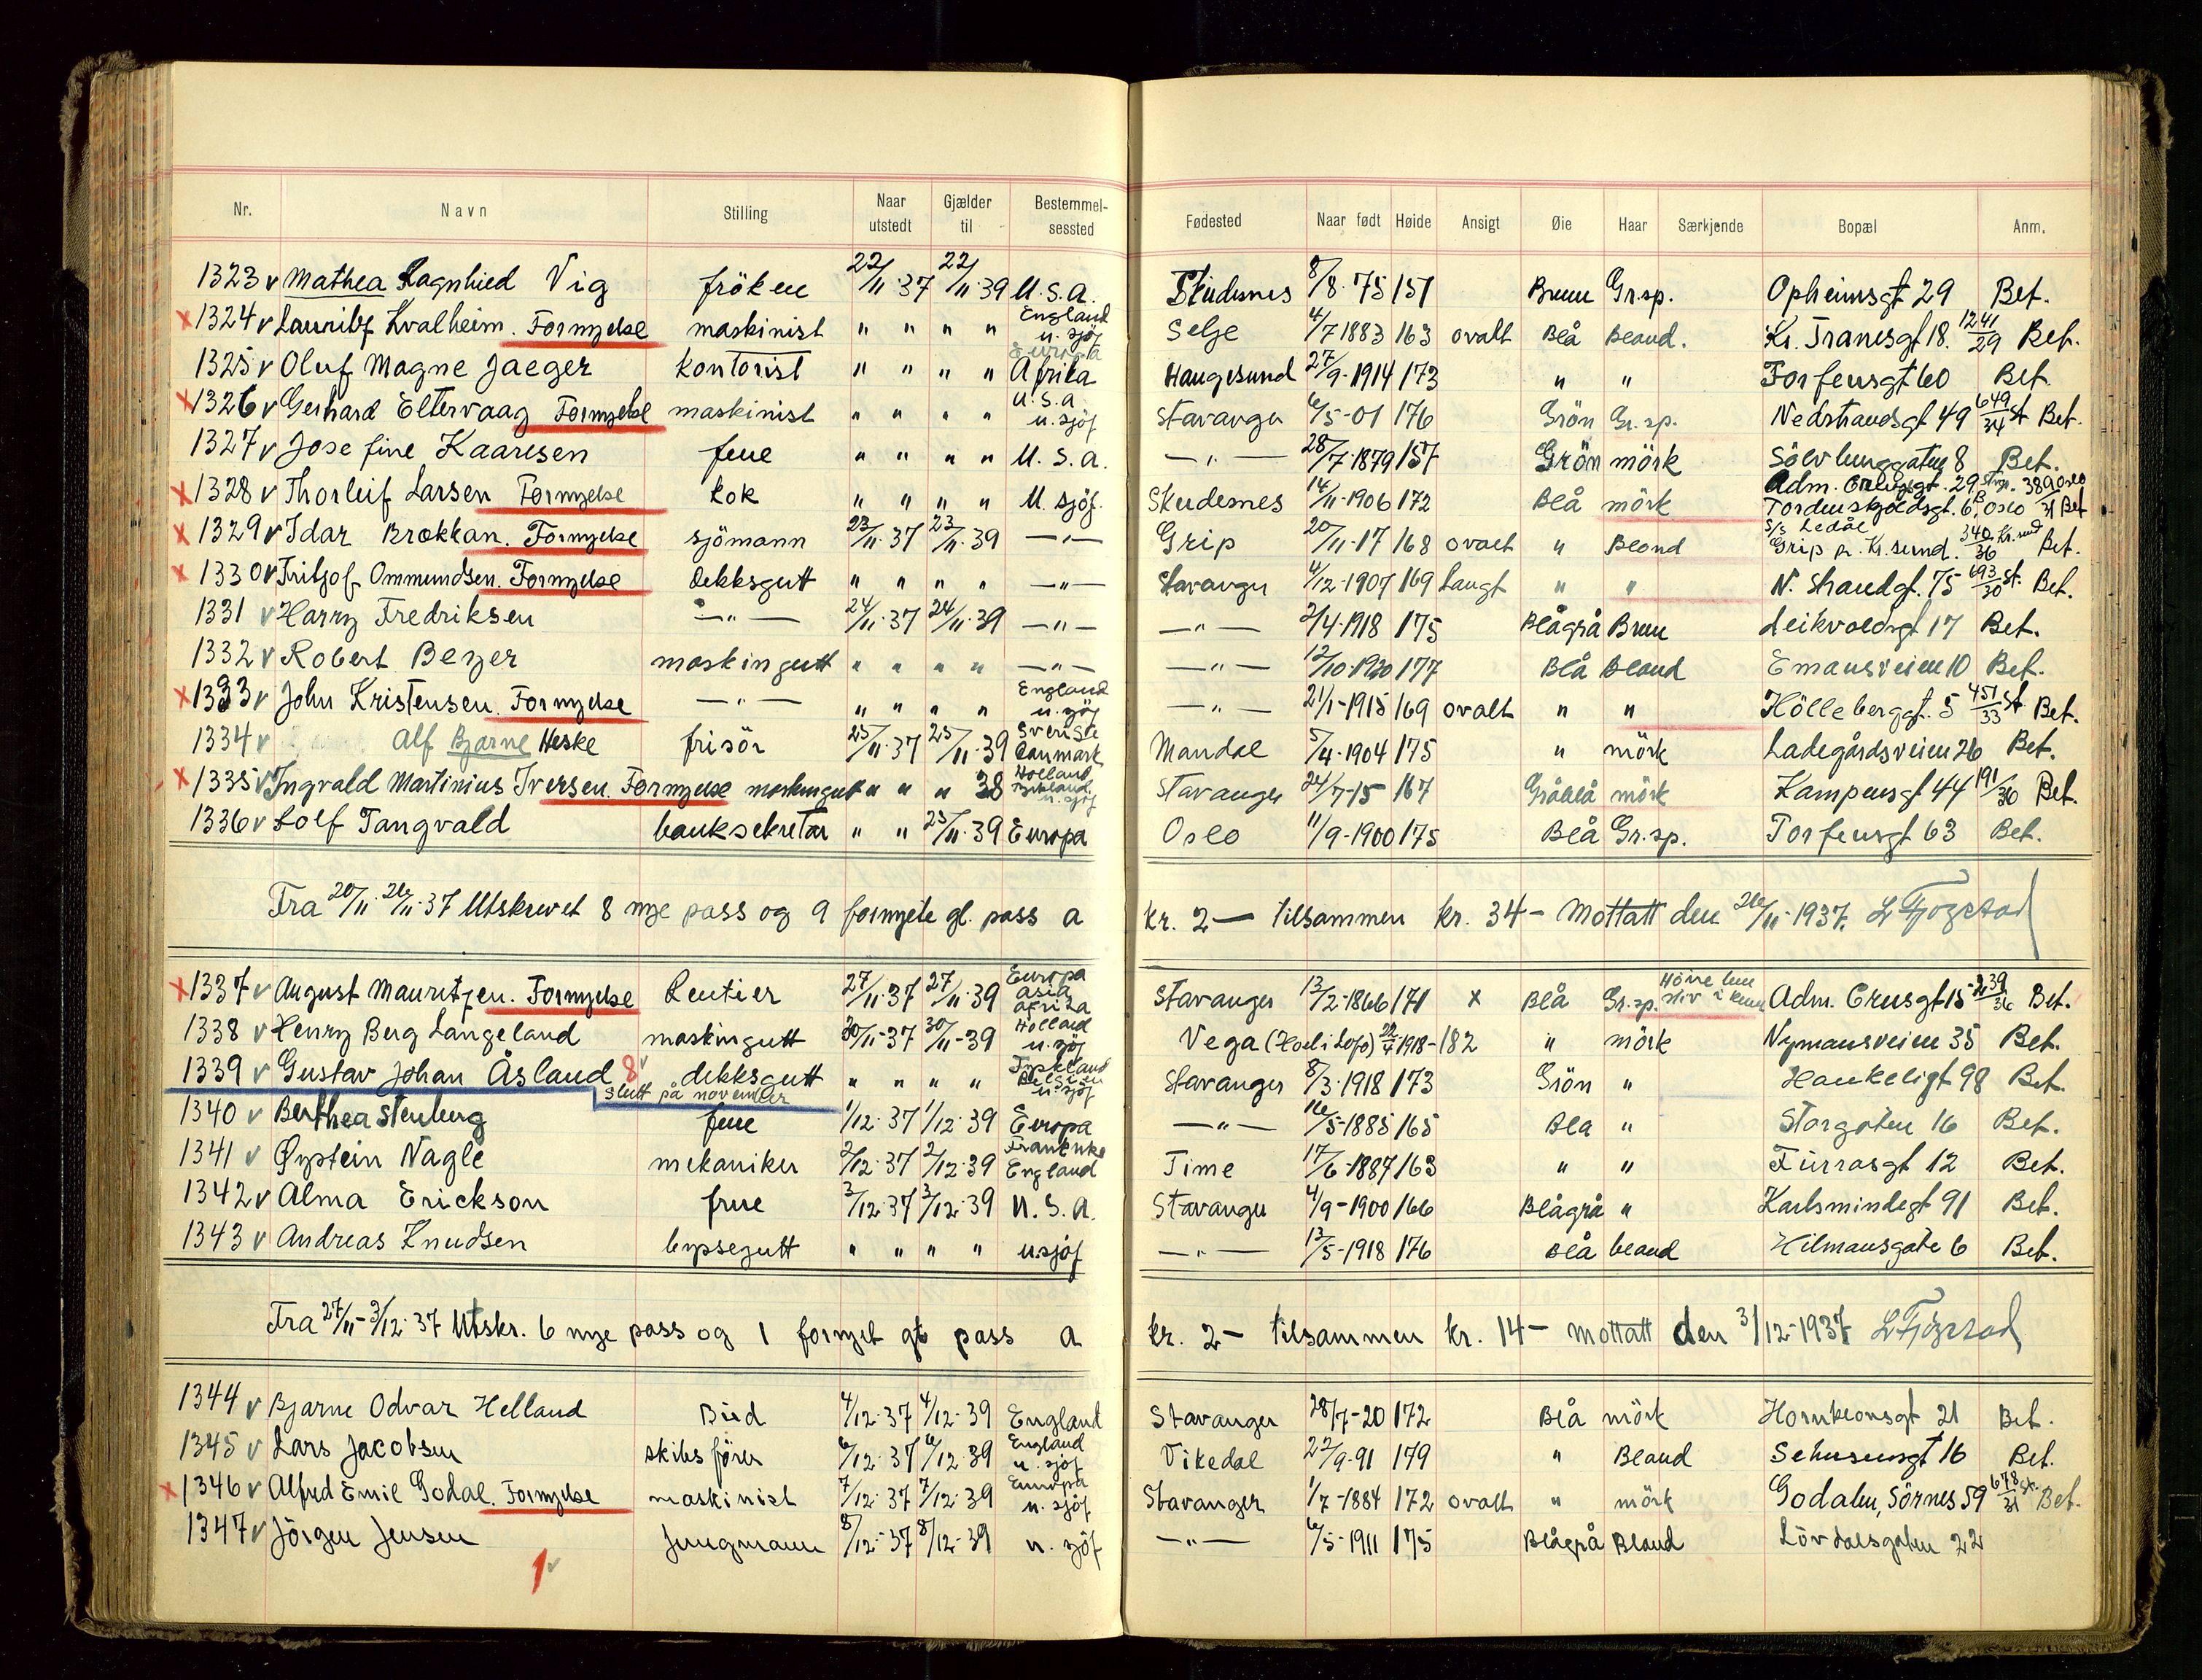 Nr. Navn Stilling Naar utstedt Gjælder til Bestemmelsessted Fødested Naar født Høide Ansigt Øie Haar Særkjende Bopæl Anm.
1323 v Mathea Ragnhied Vig fröken 22/11-37 22/11-39 U.S.A. Skudesnes 8/8-75 157 Brun Gr.sp. Opheimsgt 29 Bet.
x 1324 v Lauritz Kvalheim. Fornyelse maskinist " " " " England u. sjöf Selje 4/7 1883 163 ovalt Blå Bland. Kr. Tranesgt 18. 1241/29 Bet.
1325 v Oluf Magne Jaeger kontorist " " " " Europa Afrika Haugesund 27/9-1914 173 " " Torfeusgt 60 Bet.
x 1326 v Gerhard Eltervaag Fornyelse maskinist " " " " U.S.a u. sjöf Stavanger 6/5-01 176 Grön Gr.sp. Nedstrandsgt 49 649/34 St Bet.
1327 v Josefine Kaaresen frue " " " " U.S.a. —"— 28/7-1879 157 Grön mörk Sölvberggaten 8 Bet.
x 1328 v Thorleif Larsen Fornyelse kok " " " " U. sjöf. Skudesnes 14/11-1906 172 Blå mörk Tordenskjoldsgt. 6 B Oslo Bet
x 1329 v Idar Brokkan. Fornyelse sjömann 23/11-37 23/11-39 —"— Grip 20/11-17 168 ovalt " Blond S/s Ledål Grip pr. Kr.sund. 340/36 Kr.sund Bet.
x 1330 v Fritjof Ommundsen. Fornyelse dekksgutt " " " " —"— Stavanger 4/12-1907 169 Langt " " N. Strandgt. 75 693/30 St. Bet.
1331 v Harry Fredriksen —"— 24/11-37 24/11-39 —"— —"— 2/4-1918 175 Blågrå Brun Leikvoldsgt 17 Bet.
1332 v Robert Beyer maskingutt " " " " —"— —"— 12/10-1920 177 Blå Bland Emausveien 10 Bet.
x 1333 v John Kristensen. Fornyelse —"— " " " " England u. sjöf —"— 21/1-1915 169 ovalt " " Hölleberggt. 5 451/33 St Bet.
1334 v Alf Bjarne Heske frisör 25/11-37 25/11-39 Sverige Danmark Mandal 5/4-1904 175 " mörk Ladegårdsveien 26 Bet.
x 1335 v Ingvald Martinius Iversen. Fornyelse maskingutt " " " 38 Holland u. sjöf Stavanger 24/7-15 167 Gråblå mörk Kampensgt 44 191/36 Bet.
1336 v Rolf Tangvald banksekretær " " 25/11-39 Europa Oslo 11/9-1900 175 Blå Gr.sp. Torfeusgt 63 Bet.
Fra 20/11-26/11-37 Utskrevet 8 nye pass og 9 fornyete gl. pass a kr. 2— tilsammen kr. 34— Mottatt den 26/11-1937.
x 1337 v August Mauritzen. Fornyelse Rentier 27/11-37 27/11-39 Europa Asia Afrika Stavanger 13/2-1866 171 x Blå Gr.sp. Höire ben stiv i kneet Adm. Crusgt 15 239/36 Bet.
1338 v Henry Berg Langeland maskingutt 30/11-37 30/11-39 Holland u. sjöf Vega 22/4 1918- 182 " mörk Nymansveien 35 Bet.
1339 v Gustav Johan Åsland 8 v dekksgutt " " " " Tyskland Belgien u. sjöf Stavanger 8/3-1918 173 Grön " Haukeligt 98 Bet.
Slutt på november
1340 v Berthea Stenberg frue 1/12-37 1/12-39 Europa —"— 16/5-1885 165 Blå " Storgaten 16 Bet.
1341 v Øystein Nagle mekaniker 2/12-37 2/12-39 Frankrike England Time 17/6-1887 163 " " Furrasgt 12 Bet.
1342 v Alma Erickson frue 3/12-37 3/12-39 U.S.A. Stavanger 4/9-1900 166 Blågrå " Karlsmindegt 91 Bet.
1343 v Andreas Knudsen byssegutt " " " " u.sjöf —"— 13/5-1918 176 Blå bland Hilmausgate 6 Bet.
Fra 27/11-3/12-37 Utskr. 6 nye pass og 1 fornyet glt pass a kr. 2— tilsammen kr. 14— mottatt den 3/12-1937
1344 v Bjarne Odvar Helland Bud 4/12-37 4/12-39 England Stavanger 28/7-20 172 Blå mörk Hornklovsgt 21 Bet.
1345 v Lars Jacobsen skibsförer 6/12-37 6/12-39 England u. sjöf Vikedal 22/9-91 179 " Bland Sehusensgt 16 Bet.
x 1346 v Alfred Emil Godal. Fornyelse maskinist 7/12-37 7/12-39 Europa u. sjöf Stavanger 1/7-1884 172 ovalt " mörk Godalen, Sörnes 59 678/31 St. Bet.
1347 v Jörgen Jensen Jungmann 8/12-37 8/12-39 u. sjöf —"— 6/5-1911 175 Blågrå Bland Lövdalsgaten 22
1 v